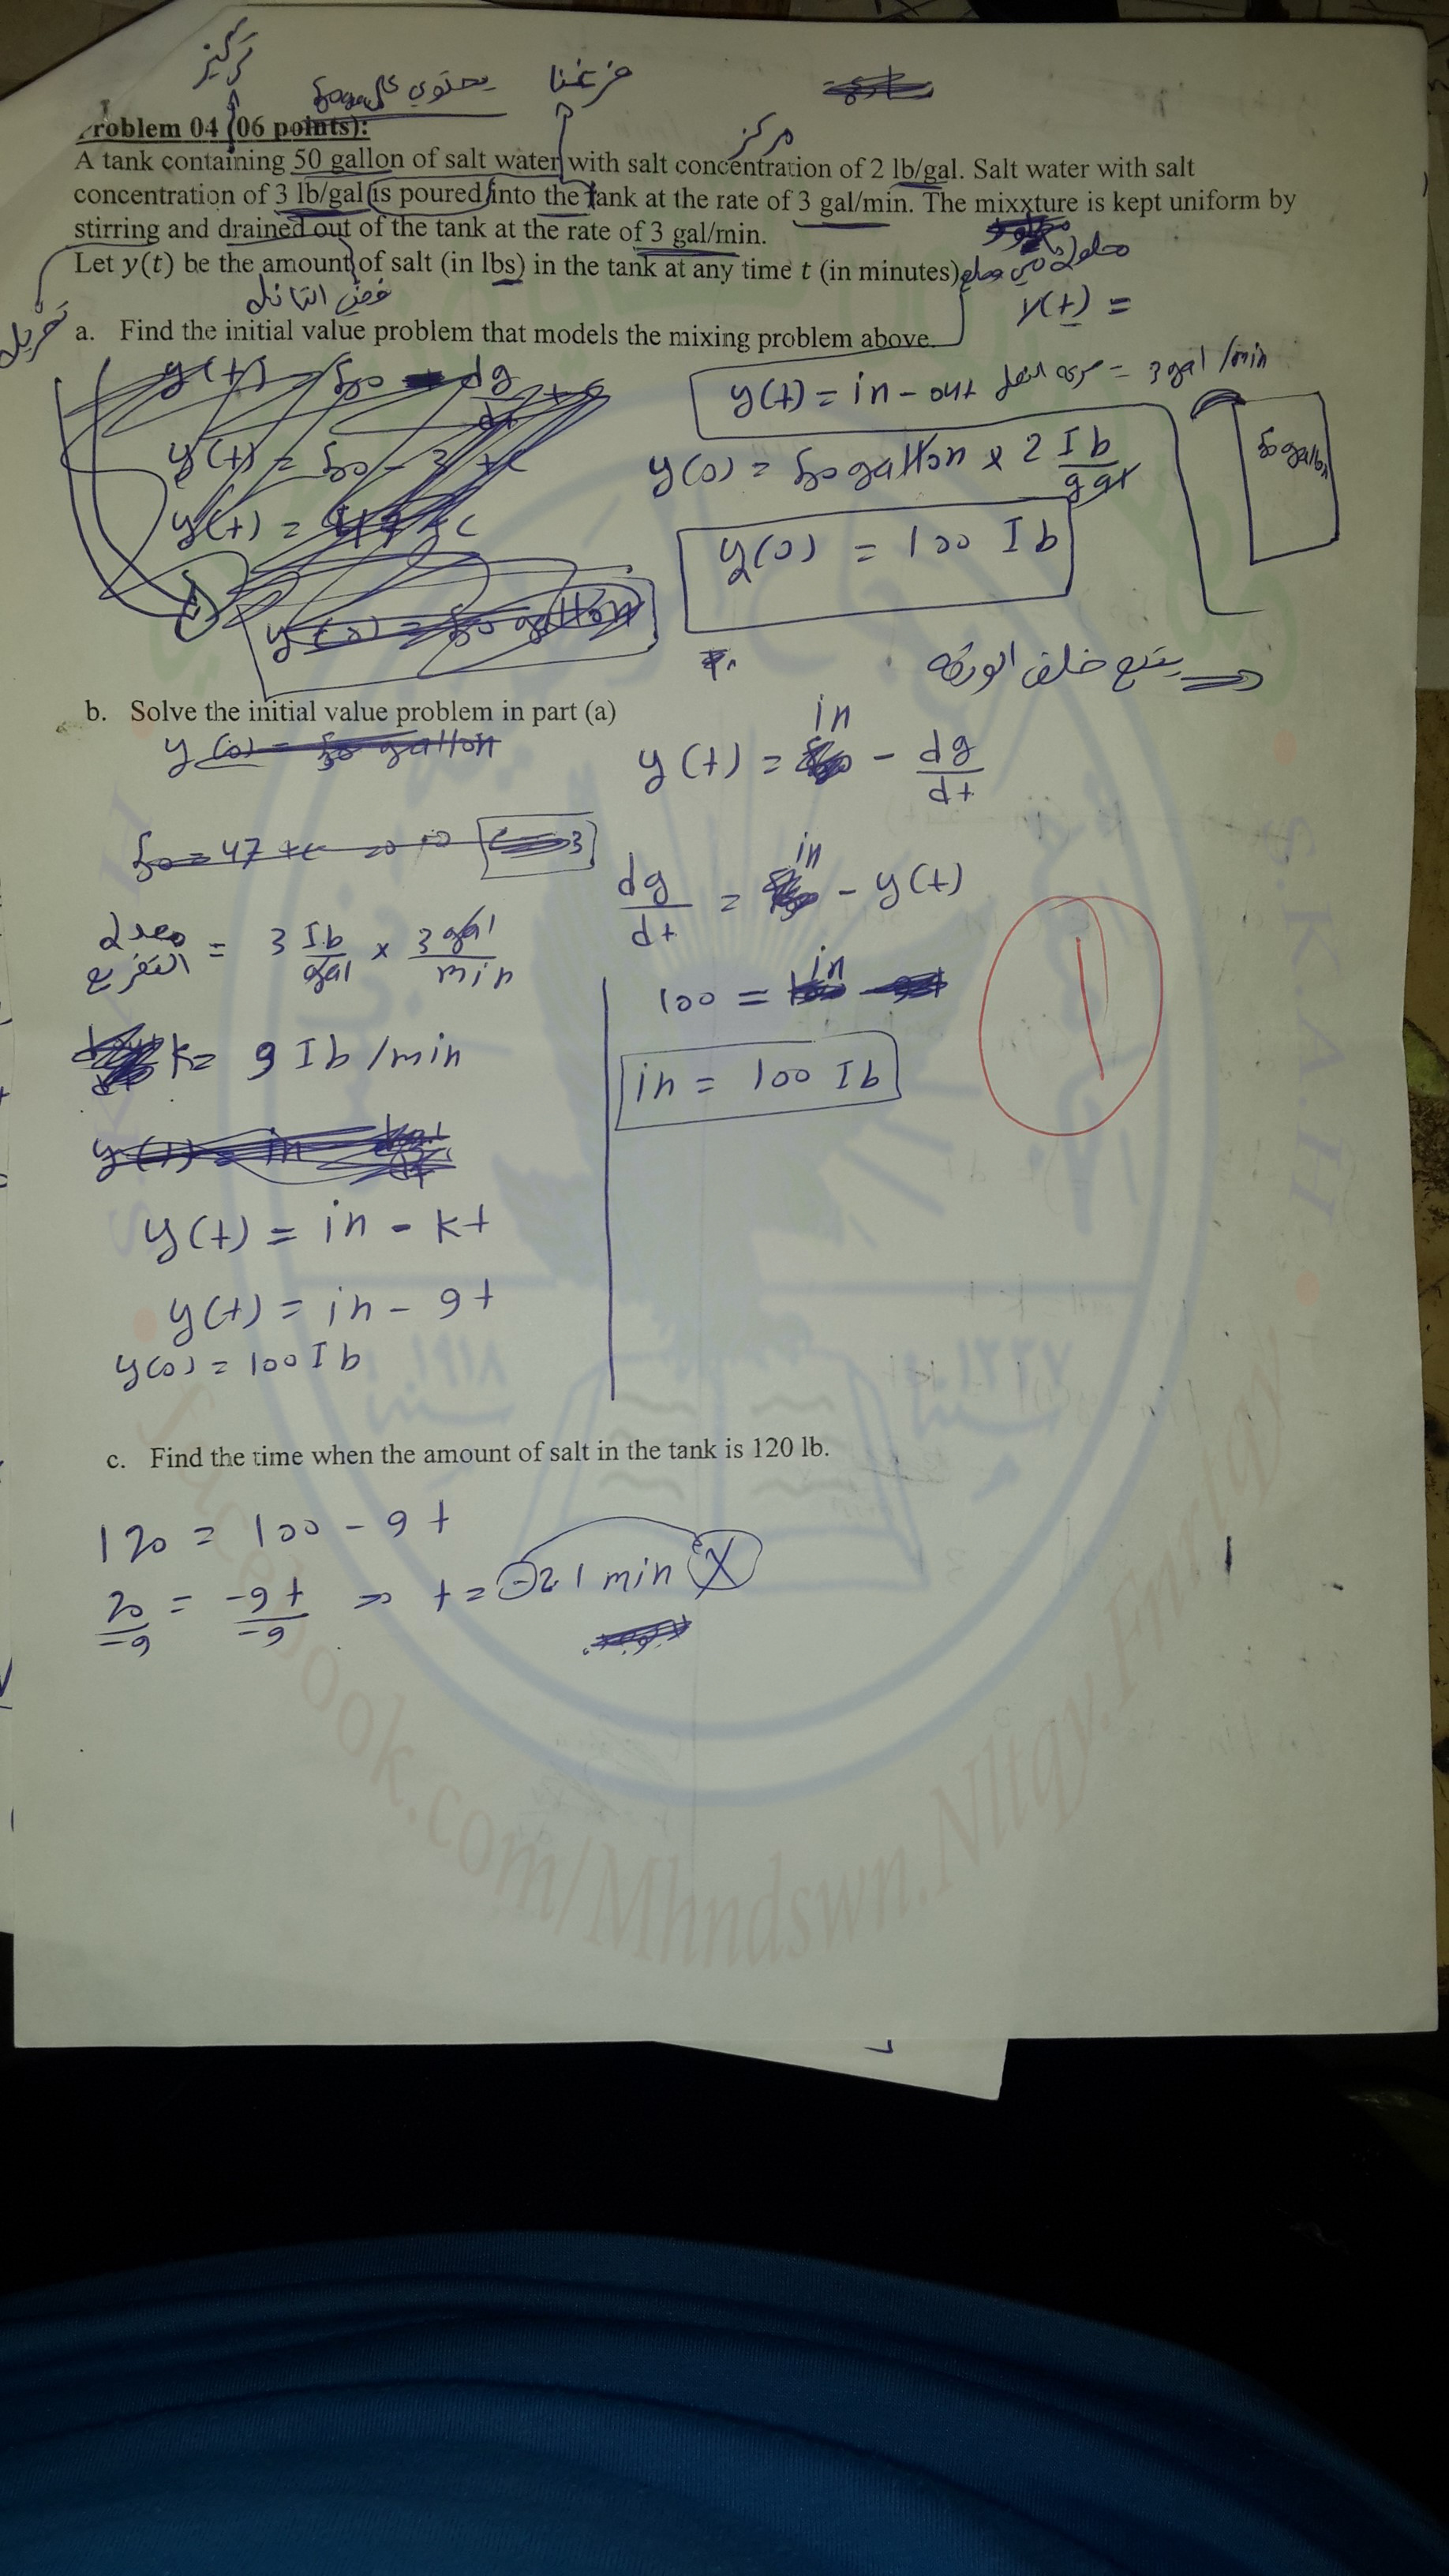 تركيز
يحتوي على 50gal
فرغنا
مركز
Problem 04 (06 points):
A tank containing 50 gallon of salt water with salt concentration of 2 lb/gal. Salt water with salt
concentration of 3 lb/gal is poured into the tank at the rate of 3 gal/min. The mixxture is kept uniform by
stirring and drained out of the tank at the rate of 3 gal/min.
Let y(t) be the amount of salt (in lbs) in the tank at any time t (in minutes)
y(t) =
a. Find the initial value problem that models the mixing problem above.
y(t) = in - out = 3 gal /min
50 gallon
y(0) = 50 gallon x 2 Ib/gal
y(0) = 100 Ib
يتبع خلف الورقة
b. Solve the initial value problem in part (a)
y (0) = 50 gallon
y(t) = in - dy/dt
50 = 47 + c
dy/dt = in - y(t)
التفريغ = 3 Ib/gal x 3 gal/min
100 = in
k= 9 Ib/min
in = 100 Ib
y(t) = in
y(t) = in - kt
y(t) = in - 9t
y(0) = 100 Ib
١٩١٨
١٣٣٧
c. Find the time when the amount of salt in the tank is 120 lb.
120 = 100 - 9t
20/-9 = -9t/-9 => t = -2.1 min X
S.K.A.H
facebook.com/Mhndswn.Nltqy.Fnrtqy